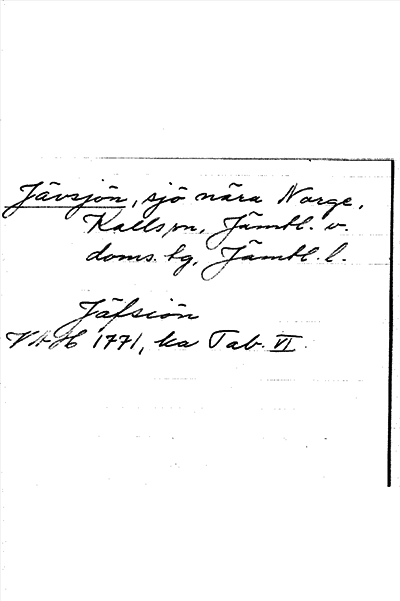 Jävsjön, sjö nära Norge,
Kalls sn, Jämtl. v.
doms. tg, Jämtl. l.
Jäfsiön
VAH 1771, ka Tab. VI